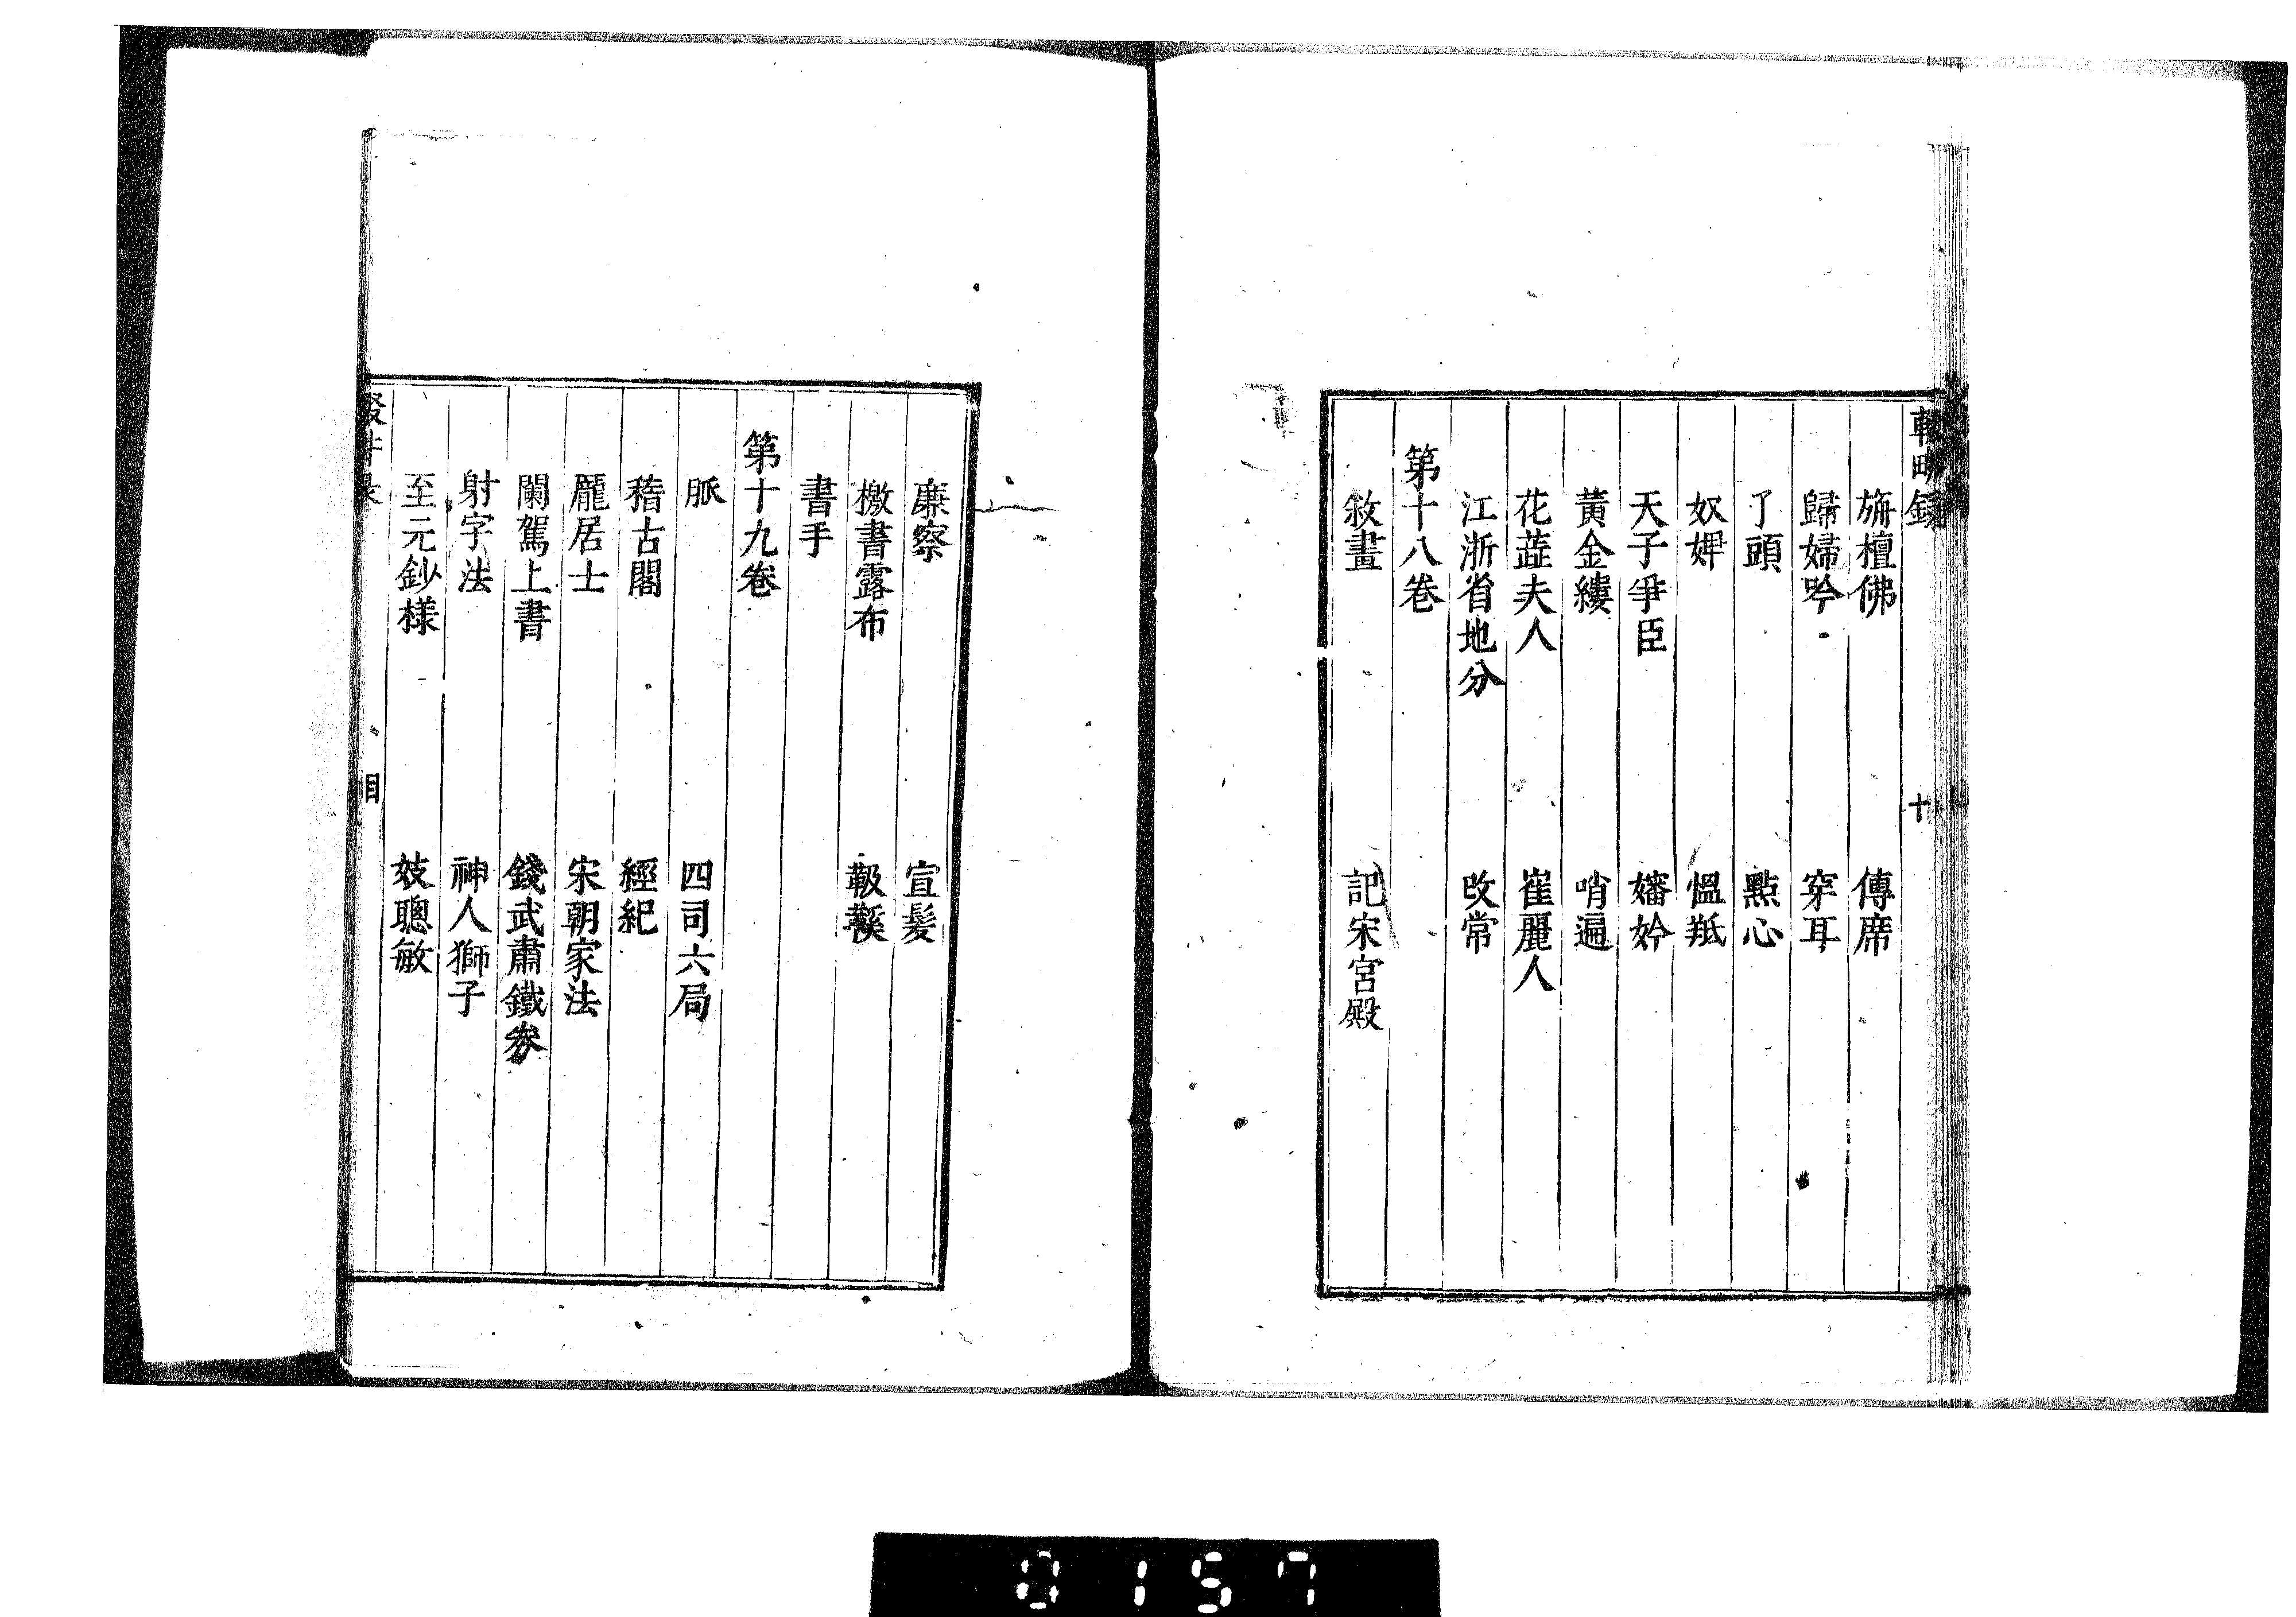 旃檀佛　傳席
歸婦吟　穿耳
了頭　點心
奴婢　慍羝
天子爭臣　嬸妗
黃金縷　哨遍
花蕋夫人　崔麗人
江浙省地分　改常
第十八卷
敘畫　記宋宮殿
廉察　宣髪
檄書露布　靸鞵
書手
第十九卷
脈　四司六局
稽古閣　經紀
龎居士　宋朝家法
闌駕上書　錢武肅鐵券
射字法　神人獅子
至元鈔様　妓聰敏
目
0157